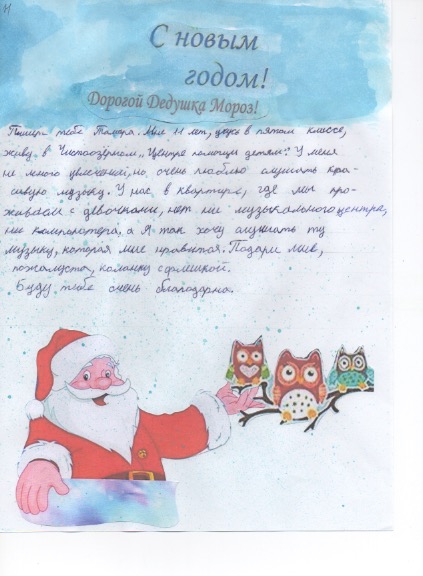 11
С новым
годом!
Дорогой Дедушка Мороз!
Пишет тебе Тамара. Мне 11 лет, учусь в пятом классе,
живу в Чистоозёрном „Центре помощи детям". У меня
не много увлечений, но очень люблю слушать кра-
сивую музыку. У нас в квартире, где мы про-
живаем с девочками, нет ни музыкального центра,
ни компьютера, а я так хочу слушать ту
музыку, которая мне нравится. Подари мне,
пожалуста, колонку с флешкой.
Буду тебе очень благодарна.